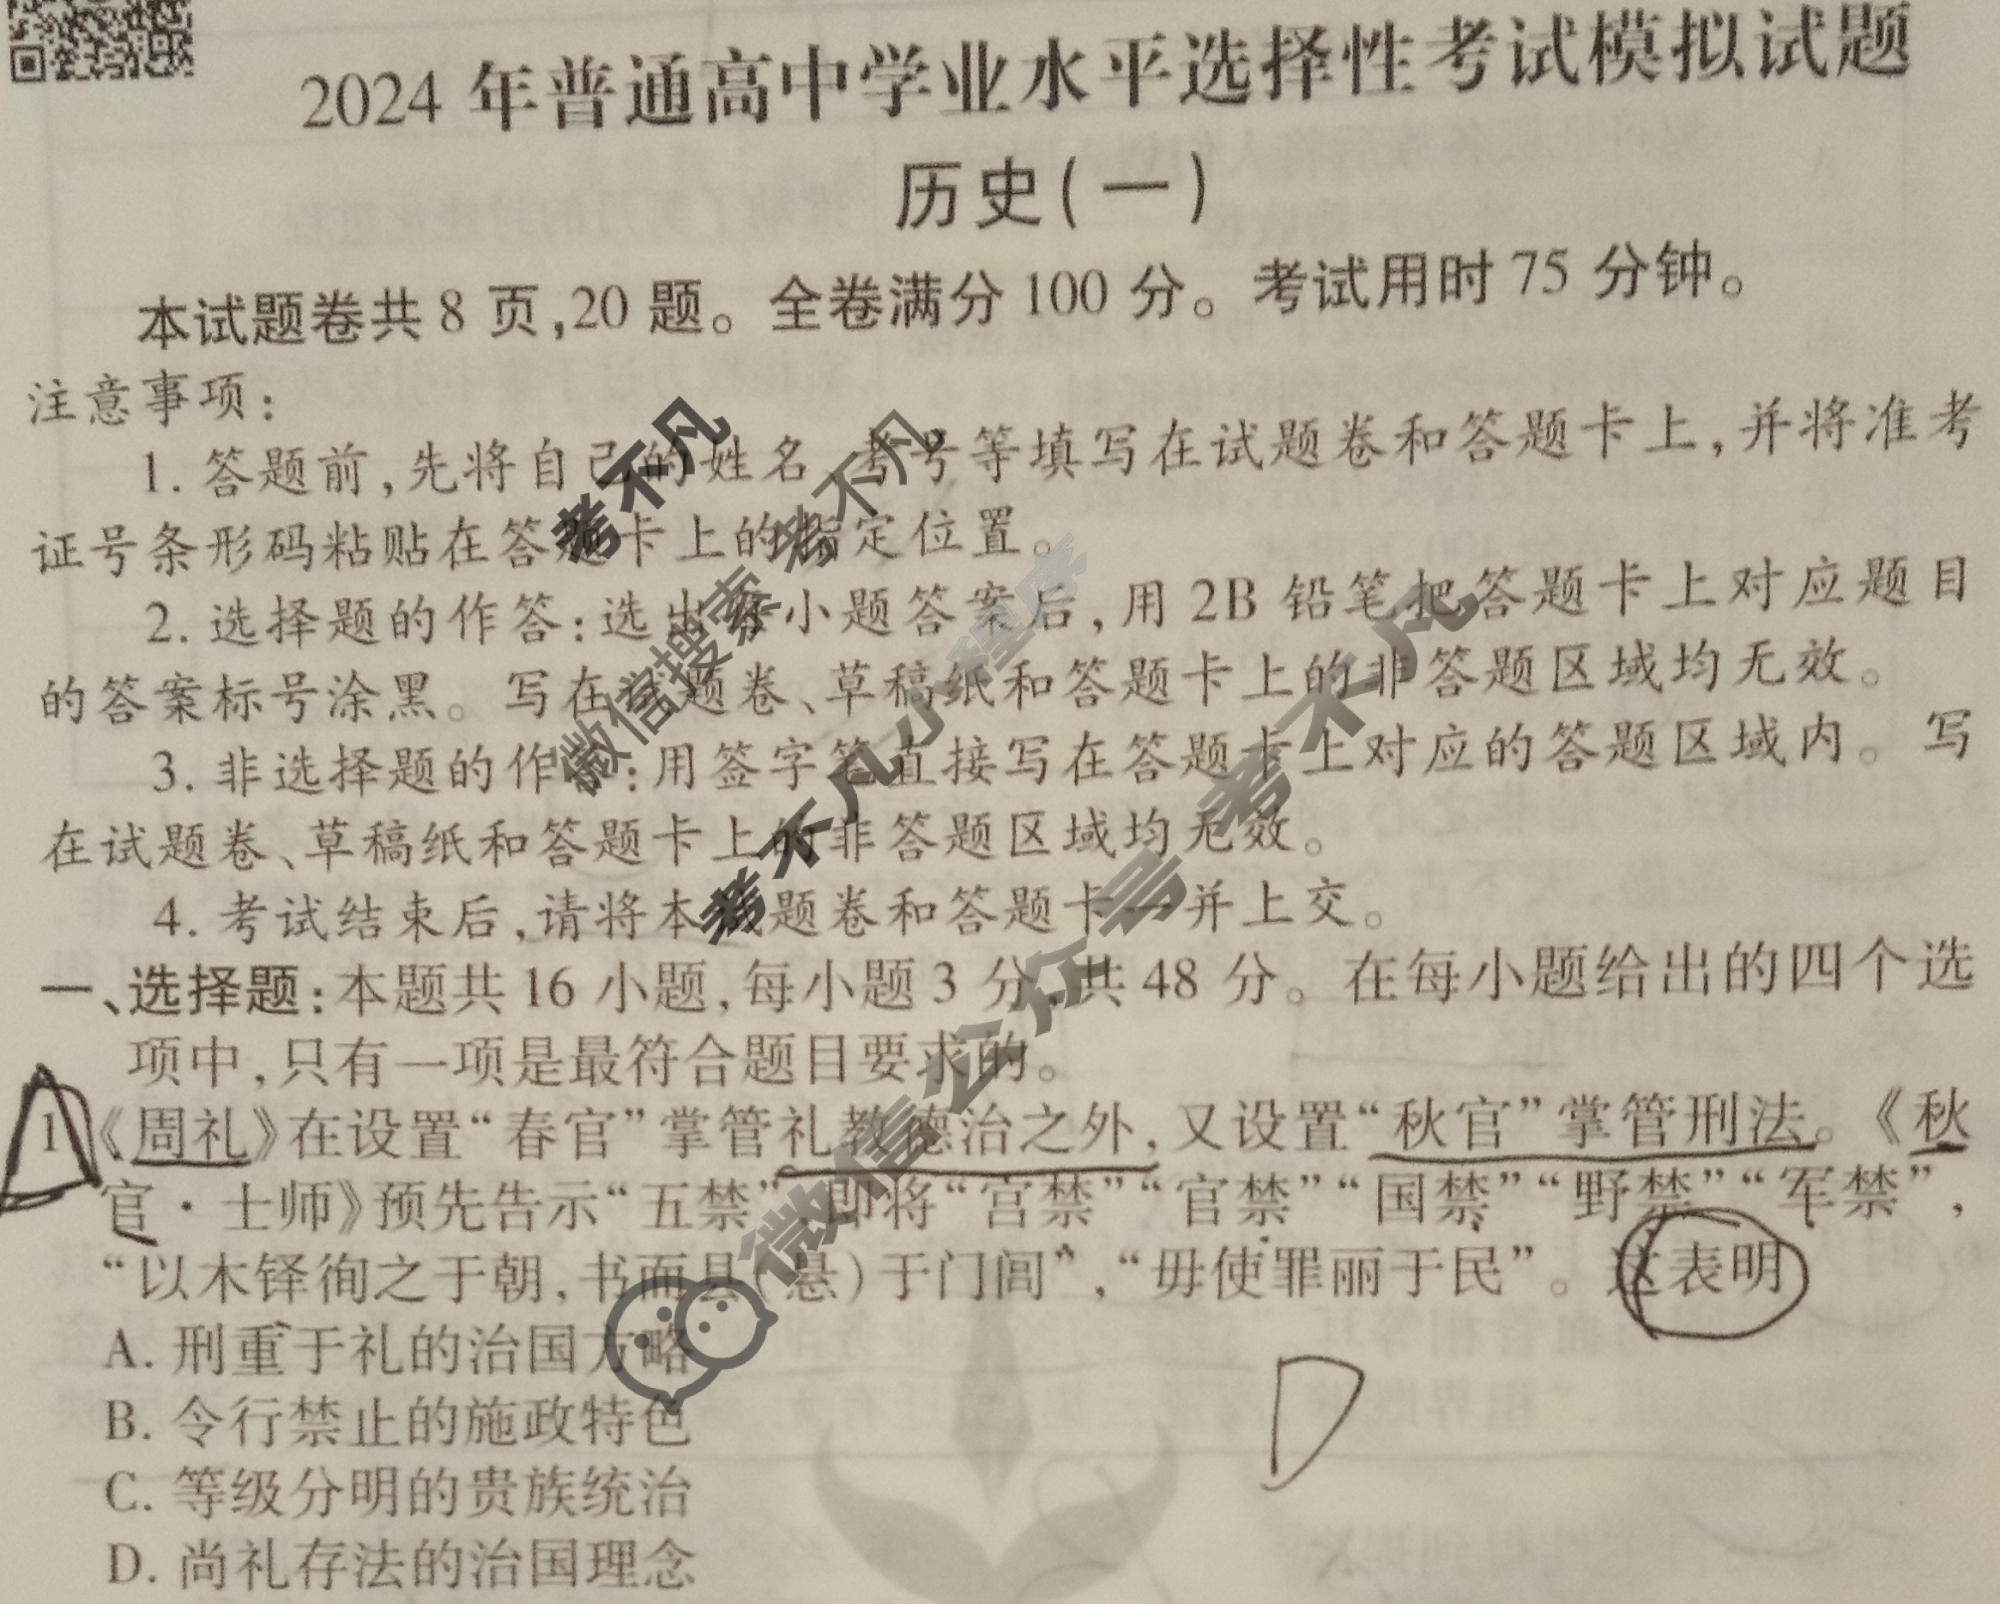 2024 年普通高中学业水平选择性考试模拟试题
历史(一)
本试题卷共 8 页,20 题。全卷满分 100 分。考试用时 75 分钟。
注意事项:
1. 答题前,先将自己的姓名、考号等填写在试题卷和答题卡上,并将准考
证号条形码粘贴在答题卡上的指定位置。
2. 选择题的作答:选出每小题答案后,用 2B 铅笔把答题卡上对应题目
的答案标号涂黑。写在试题卷、草稿纸和答题卡上的非答题区域均无效。
3. 非选择题的作答:用签字笔直接写在答题卡上对应的答题区域内。写
在试题卷、草稿纸和答题卡上的非答题区域均无效。
4. 考试结束后,请将本试题卷和答题卡一并上交。
一、选择题:本题共 16 小题,每小题 3 分,共 48 分。在每小题给出的四个选
项中,只有一项是最符合题目要求的。
1 《周礼》在设置“春官”掌管礼教德治之外,又设置“秋官”掌管刑法。《秋
官·士师》预先告示“五禁”,即将“宫禁”“官禁”“国禁”“野禁”“军禁”,
“以木铎徇之于朝,书而县(悬)于门闾”,“毋使罪丽于民”。这表明
A. 刑重于礼的治国方略
B. 令行禁止的施政特色
C. 等级分明的贵族统治
D. 尚礼存法的治国理念
D
考不凡
考不凡
微信搜索
考不凡小程序
考不凡
微信公众号